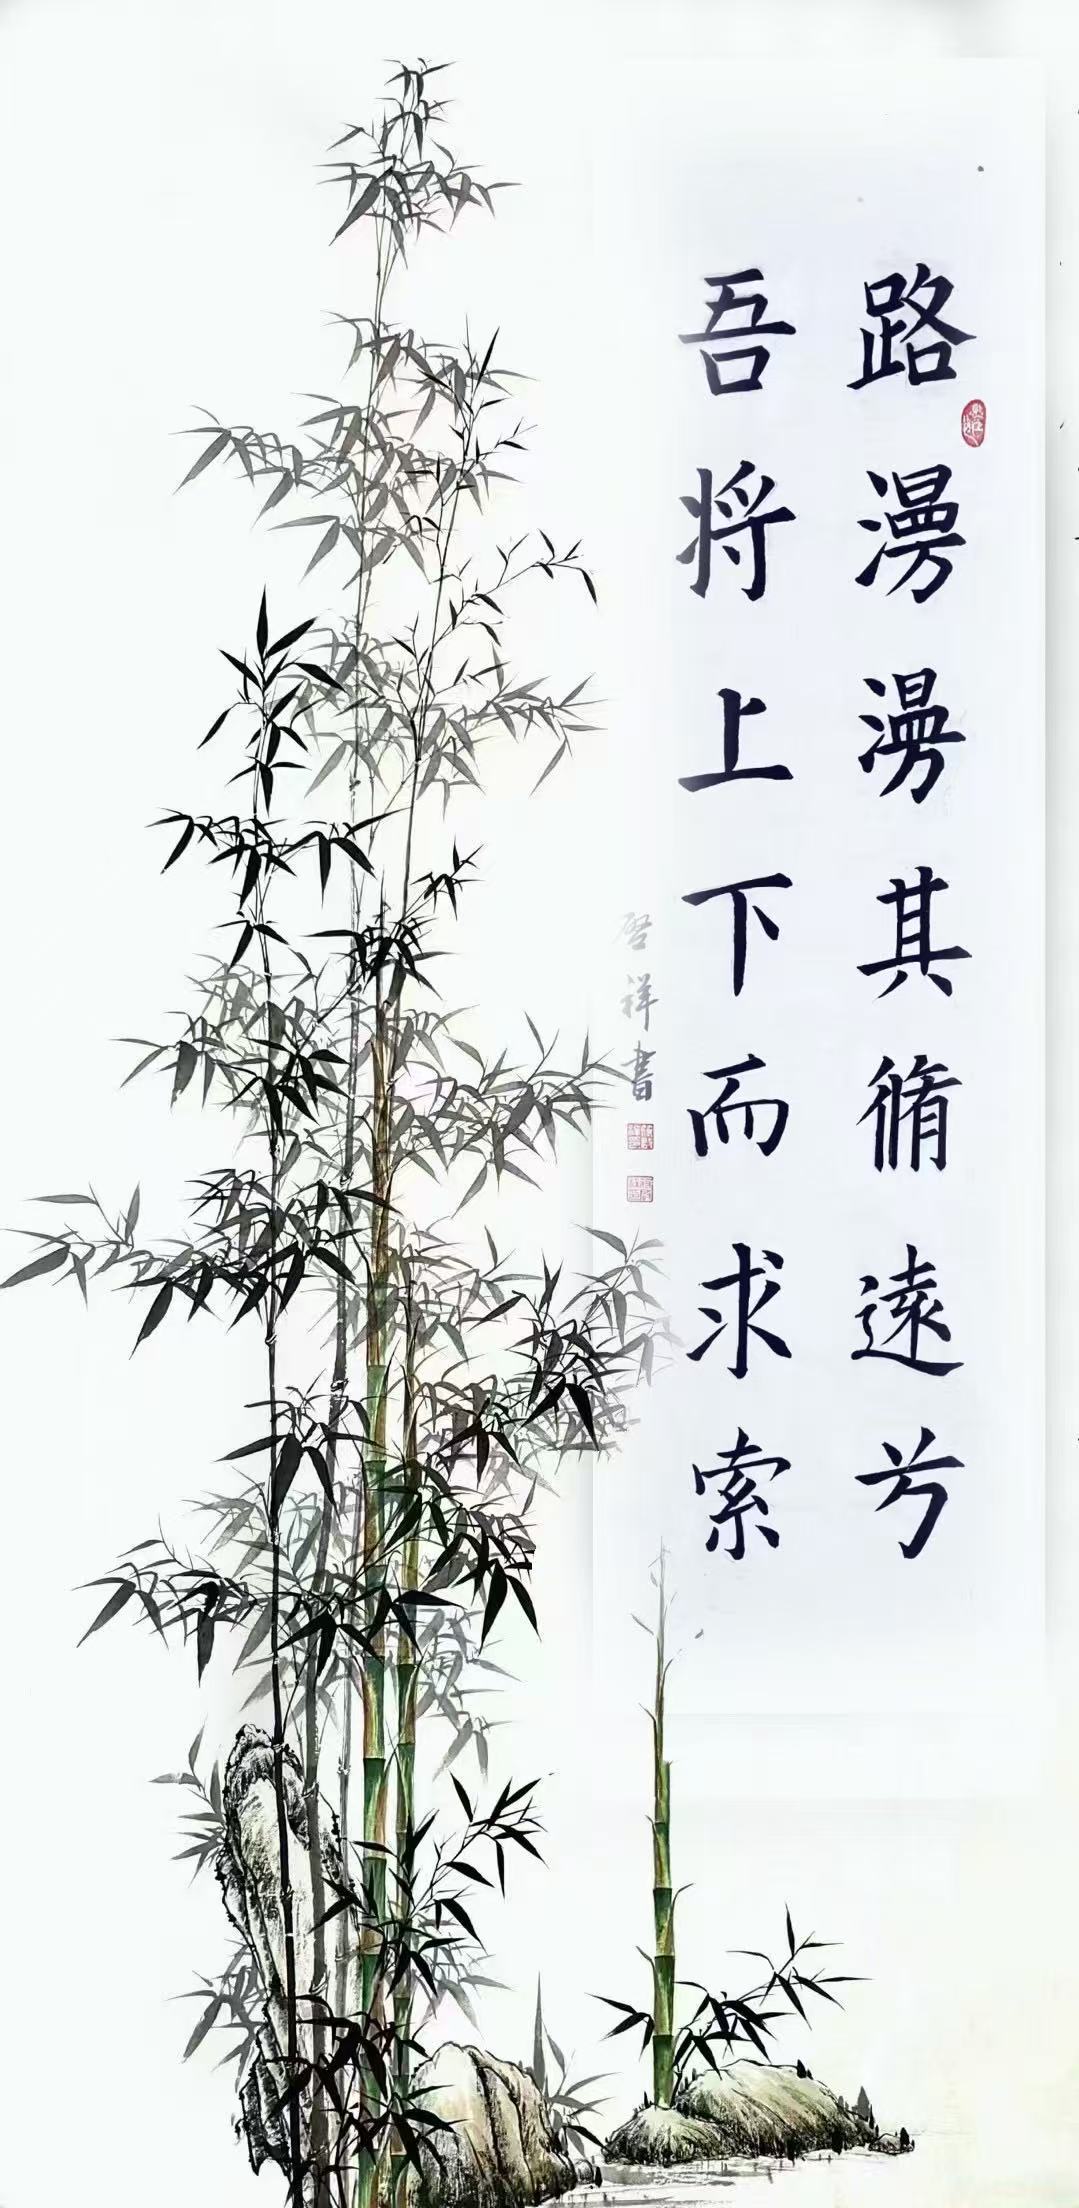 路漫漫其脩遠兮
吾将上下而求索
啓祥書